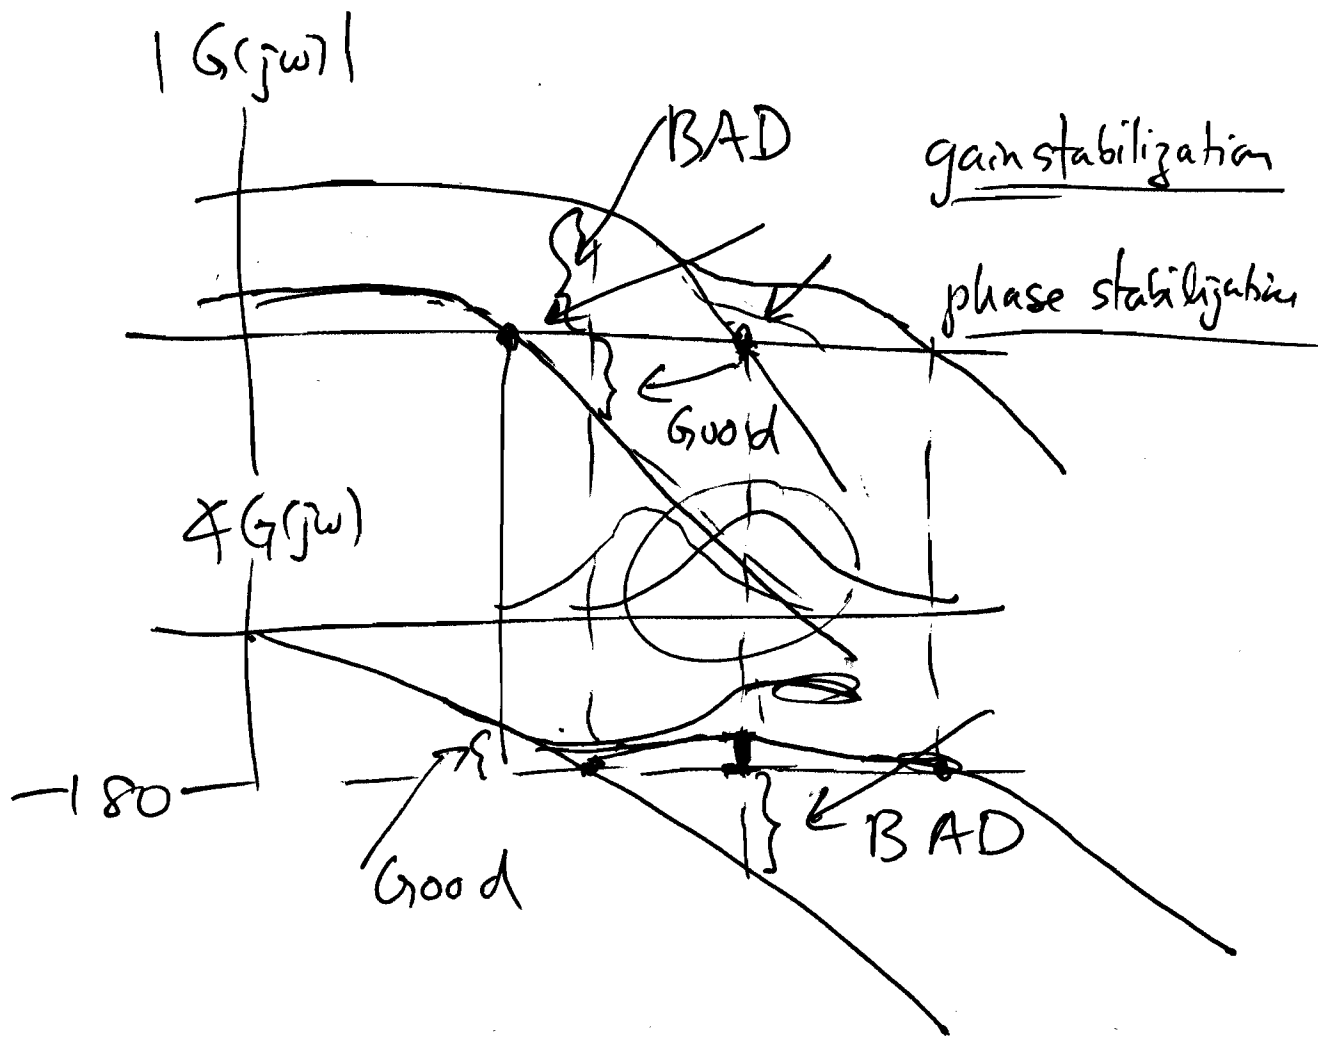 |G(jω)|
BAD
gain stabilization
phase stabilization
Good
∠G(jω)
-180
BAD
Good